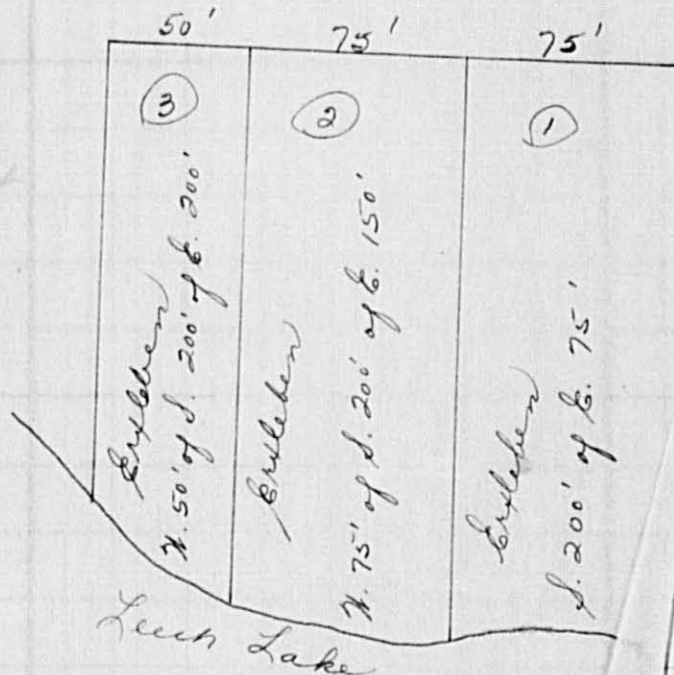 50' 75' 75'
3
2
1
Erxleben
W. 50' of S. 200' of E. 200'
Erxleben
W. 75' of S. 200' of E. 150'
Erxleben
S. 200' of E. 75'
Leech Lake